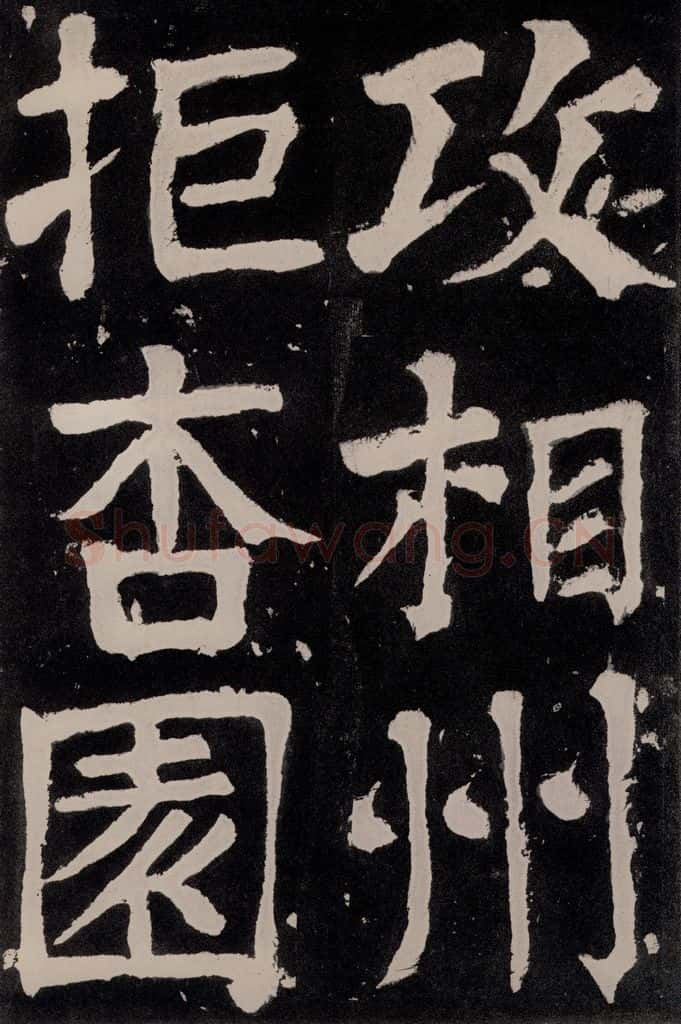 攻相州
拒杏園
Shufawang.CN